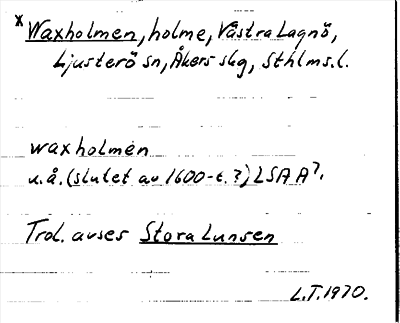 x Waxholmen, holme, Västra Lagnö,
Ljusterö sn, Åkers skg, Sthlms.l.
waxholmen
u.å. (slutet av 1600-t.?) LSA A7.
Trol. avses Stora Lunsen
L.T. 1970.